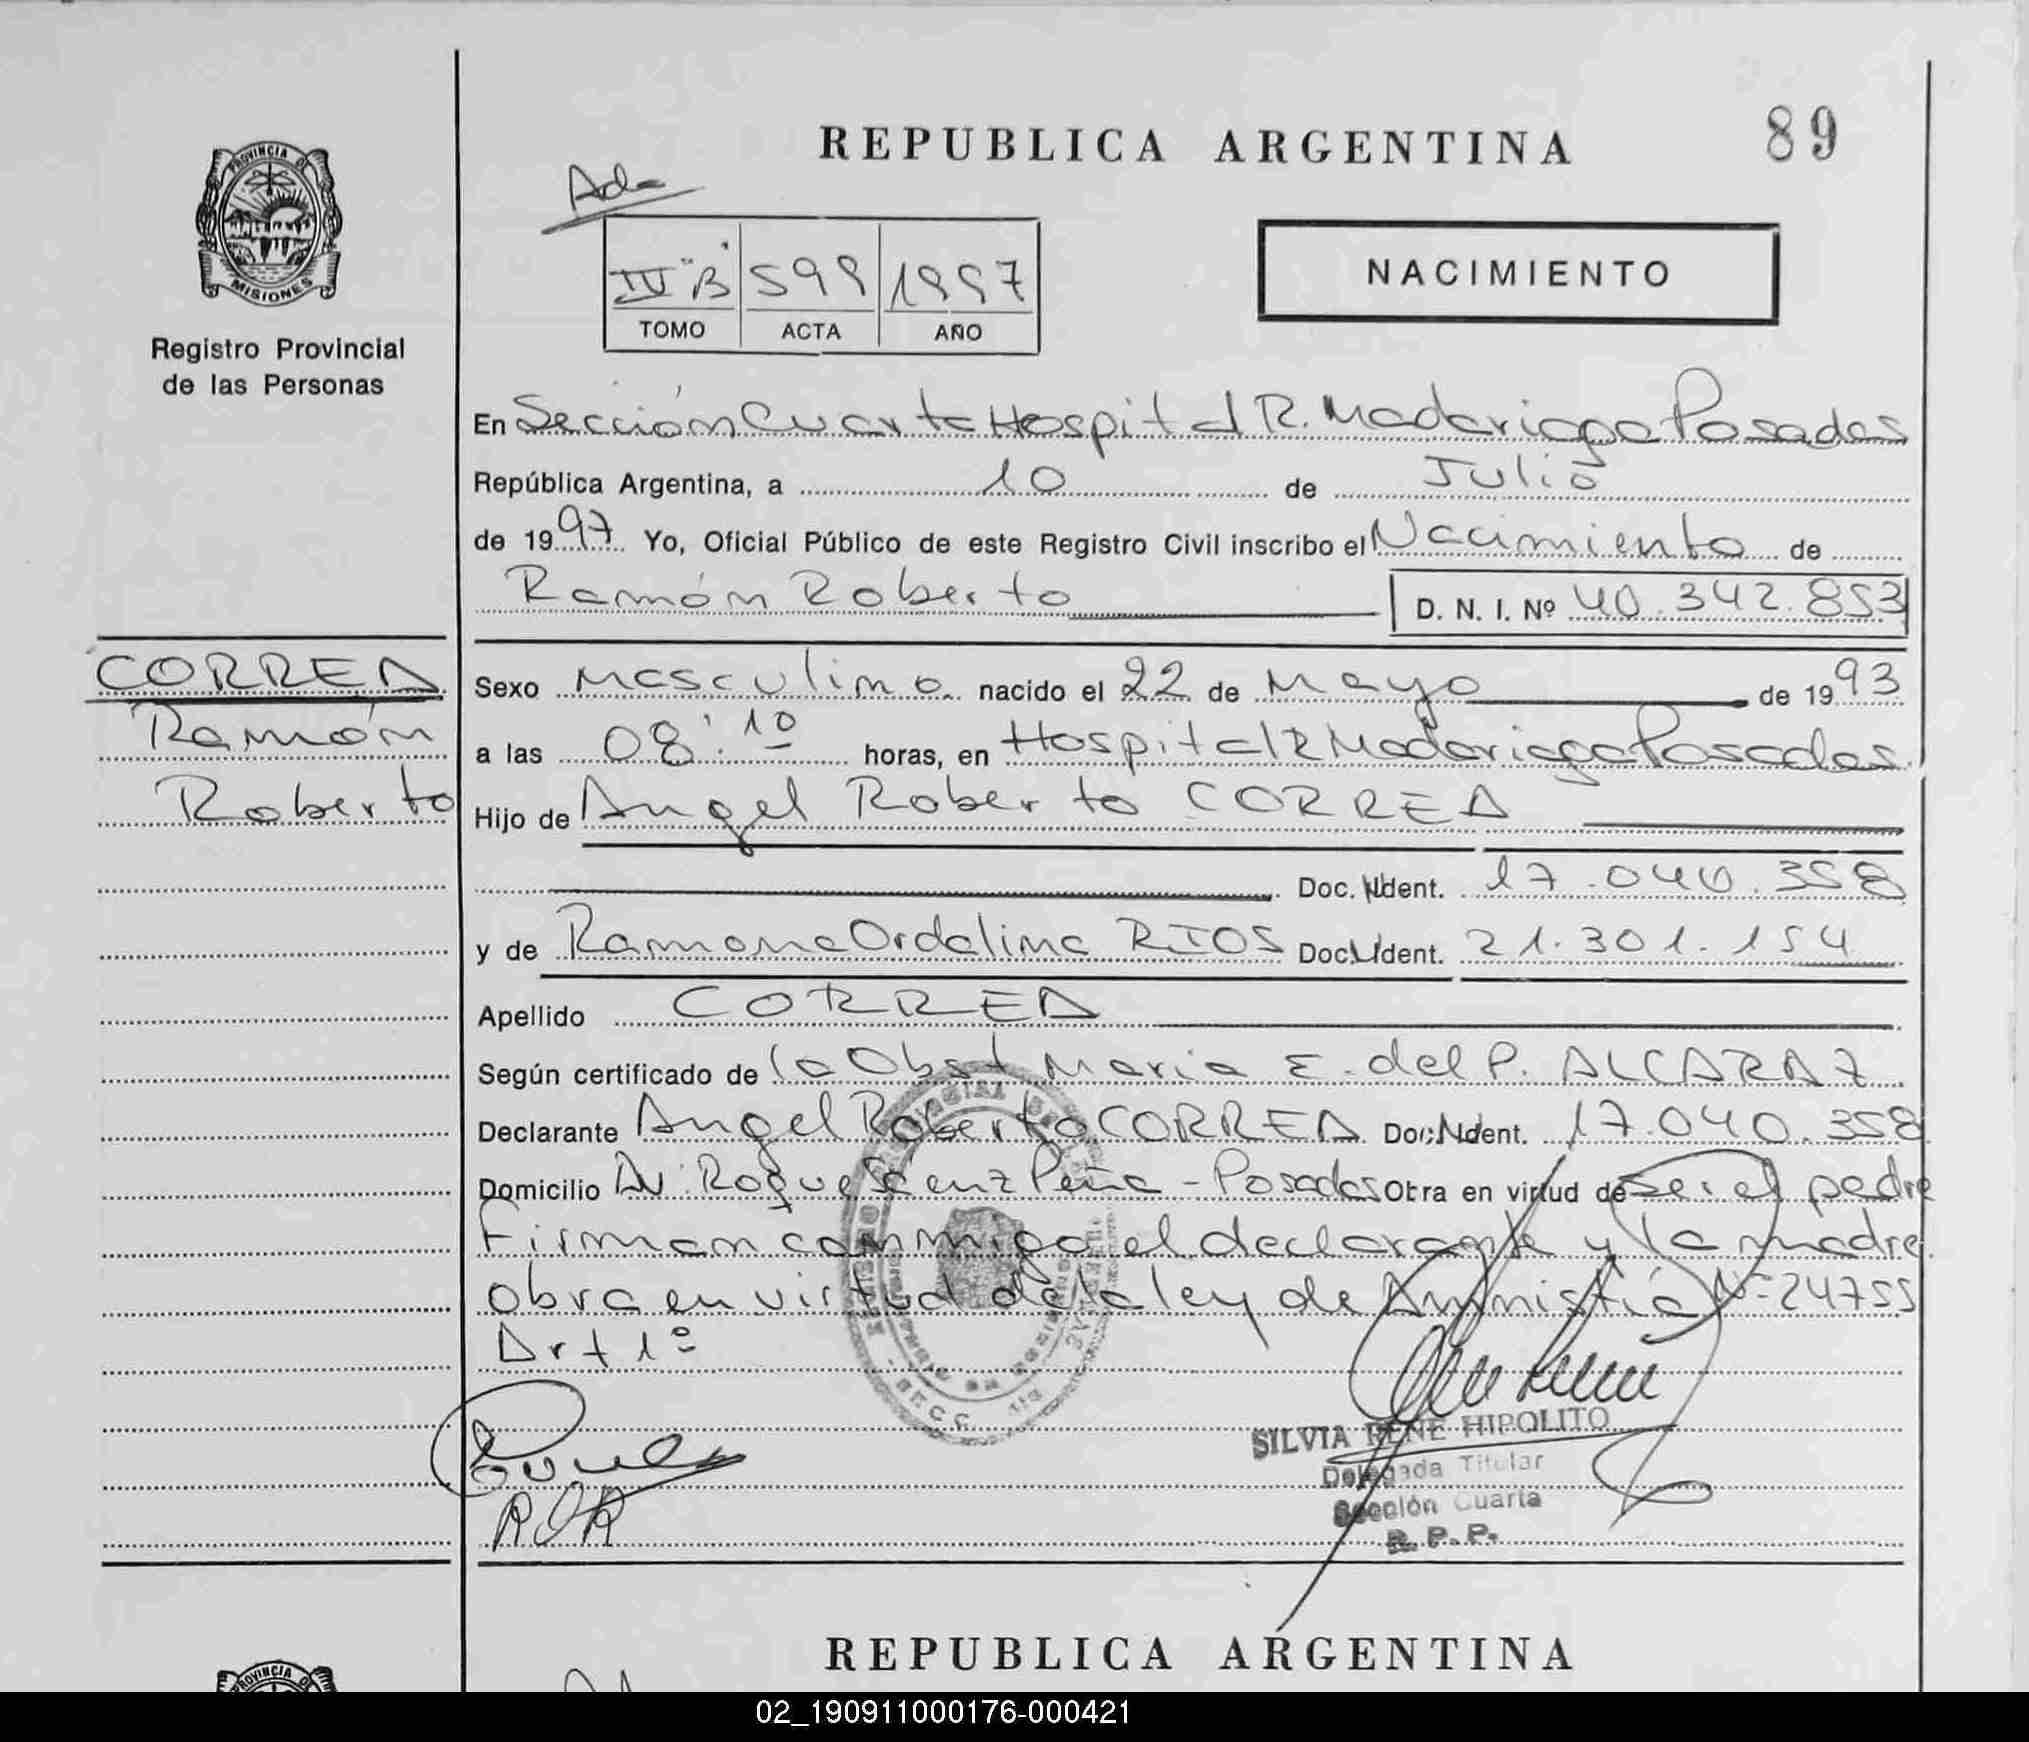 REPUBLICA ARGENTINA
89
PROVINCIA DE
MISIONES
Registro Provincial
de las Personas
IV "B" 599 1997
TOMO ACTA AÑO
NACIMIENTO
En Sección Cuarta Hospital R. Madariaga Posadas
República Argentina, a 10 de Julio
de 1997 Yo, Oficial Público de este Registro Civil inscribo el Nacimiento de
Ramón Roberto D. N. I. Nº 40.342.853
CORREA
Ramón
Roberto
Sexo Masculino nacido el 22 de Mayo de 1993
a las 08:10 horas, en Hospital R Madariaga Posadas
Hijo de Angel Roberto CORREA
Doc. Ident. 17.040.358
y de Ramona Ordalina RIOS Doc. Ident. 21.301.154
Apellido CORREA
Según certificado de la Obst Maria E. del P. ALCARAZ
Declarante Angel Roberto CORREA Doc. Ident. 17.040.358
Domicilio Av. Roque Saenz Peña - Posadas Obra en virtud de ser el padre
Firman conmigo el declarante y la madre
obra en virtud de la ley de Amnistía Nº 24755
Art 1º
ROR
SILVIA RENE HIPOLITO
Delegada Titular
Sección Cuarta
R. P. P.
REPUBLICA ARGENTINA
PROVINCIA DE
02_190911000176-000421